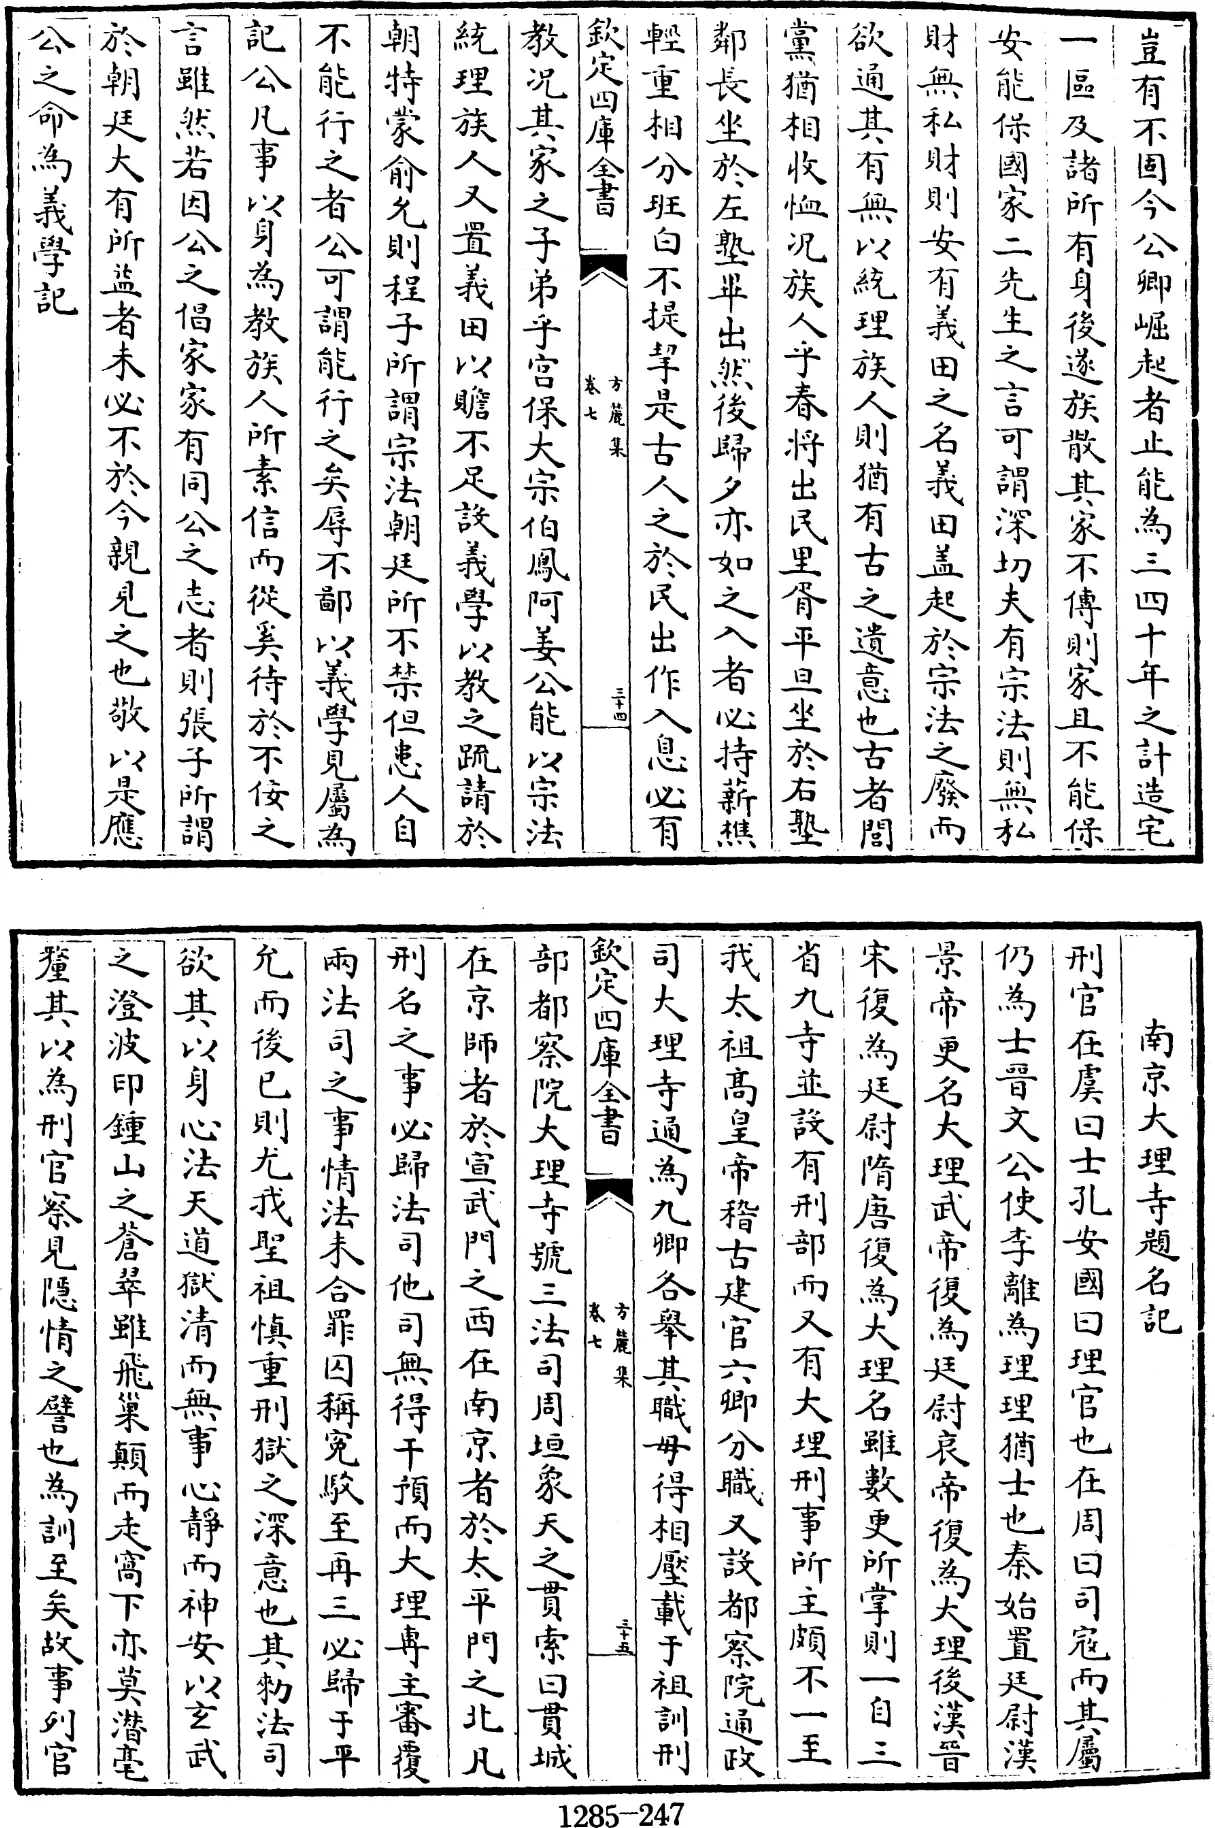 豈有不固今公卿崛起者止能為三四十年之計造宅
一區及諸所有身後遂族散其家不傳則家且不能保
安能保國家二先生之言可謂深切夫有宗法則無私
財無私財則安有義田之名義田盖起於宗法之廢而
欲通其有無以統理族人則猶有古之遺意也古者閭
黨猶相收恤况族人乎春将出民里胥平旦坐於右塾
鄰長坐於左塾畢出然後歸夕亦如之入者必持薪樵
輕重相分班白不提挈是古人之於民出作入息必有
欽定四庫全書
方麓集
卷七
三十四
教况其家之子弟乎宫保大宗伯鳳阿姜公能以宗法
統理族人又置義田以贍不足設義學以教之疏請於
朝特蒙俞允則程子所謂宗法朝廷所不禁但患人自
不能行之者公可謂能行之矣辱不鄙以義學見屬為
記公凡事以身為教族人所素信而從奚待於不佞之
言雖然若因公之倡家家有同公之志者則張子所謂
於朝廷大有所益者未必不於今親見之也敬以是應
公之命為義學記
南京大理寺題名記
刑官在虞曰士孔安國曰理官也在周曰司寇而其屬
仍為士晉文公使李離為理理猶士也秦始置廷尉漢
景帝更名大理武帝復為廷尉哀帝復為大理後漢晉
宋復為廷尉隋唐復為大理名雖數更所掌則一自三
省九寺並設有刑部而又有大理刑事所主頗不一至
我太祖髙皇帝稽古建官六卿分職又設都察院通政
司大理寺通為九卿各舉其職毋得相壓載于祖訓刑
欽定四庫全書
方麓集
卷七
三十五
部都察院大理寺號三法司周垣象天之貫索曰貫城
在京師者於宣武門之西在南京者於太平門之北凡
刑名之事必歸法司他司無得干預而大理專主審覆
兩法司之事情法未合罪囚稱寃駁至再三必歸于平
允而後已則尤我聖祖慎重刑獄之深意也其勑法司
欲其以身心法天道獄清而無事心靜而神安以玄武
之澄波印鍾山之蒼翠雖飛巢顛而走窩下亦莫潛毫
釐其以為刑官察見隱情之譬也為訓至矣故事列官
1285-247